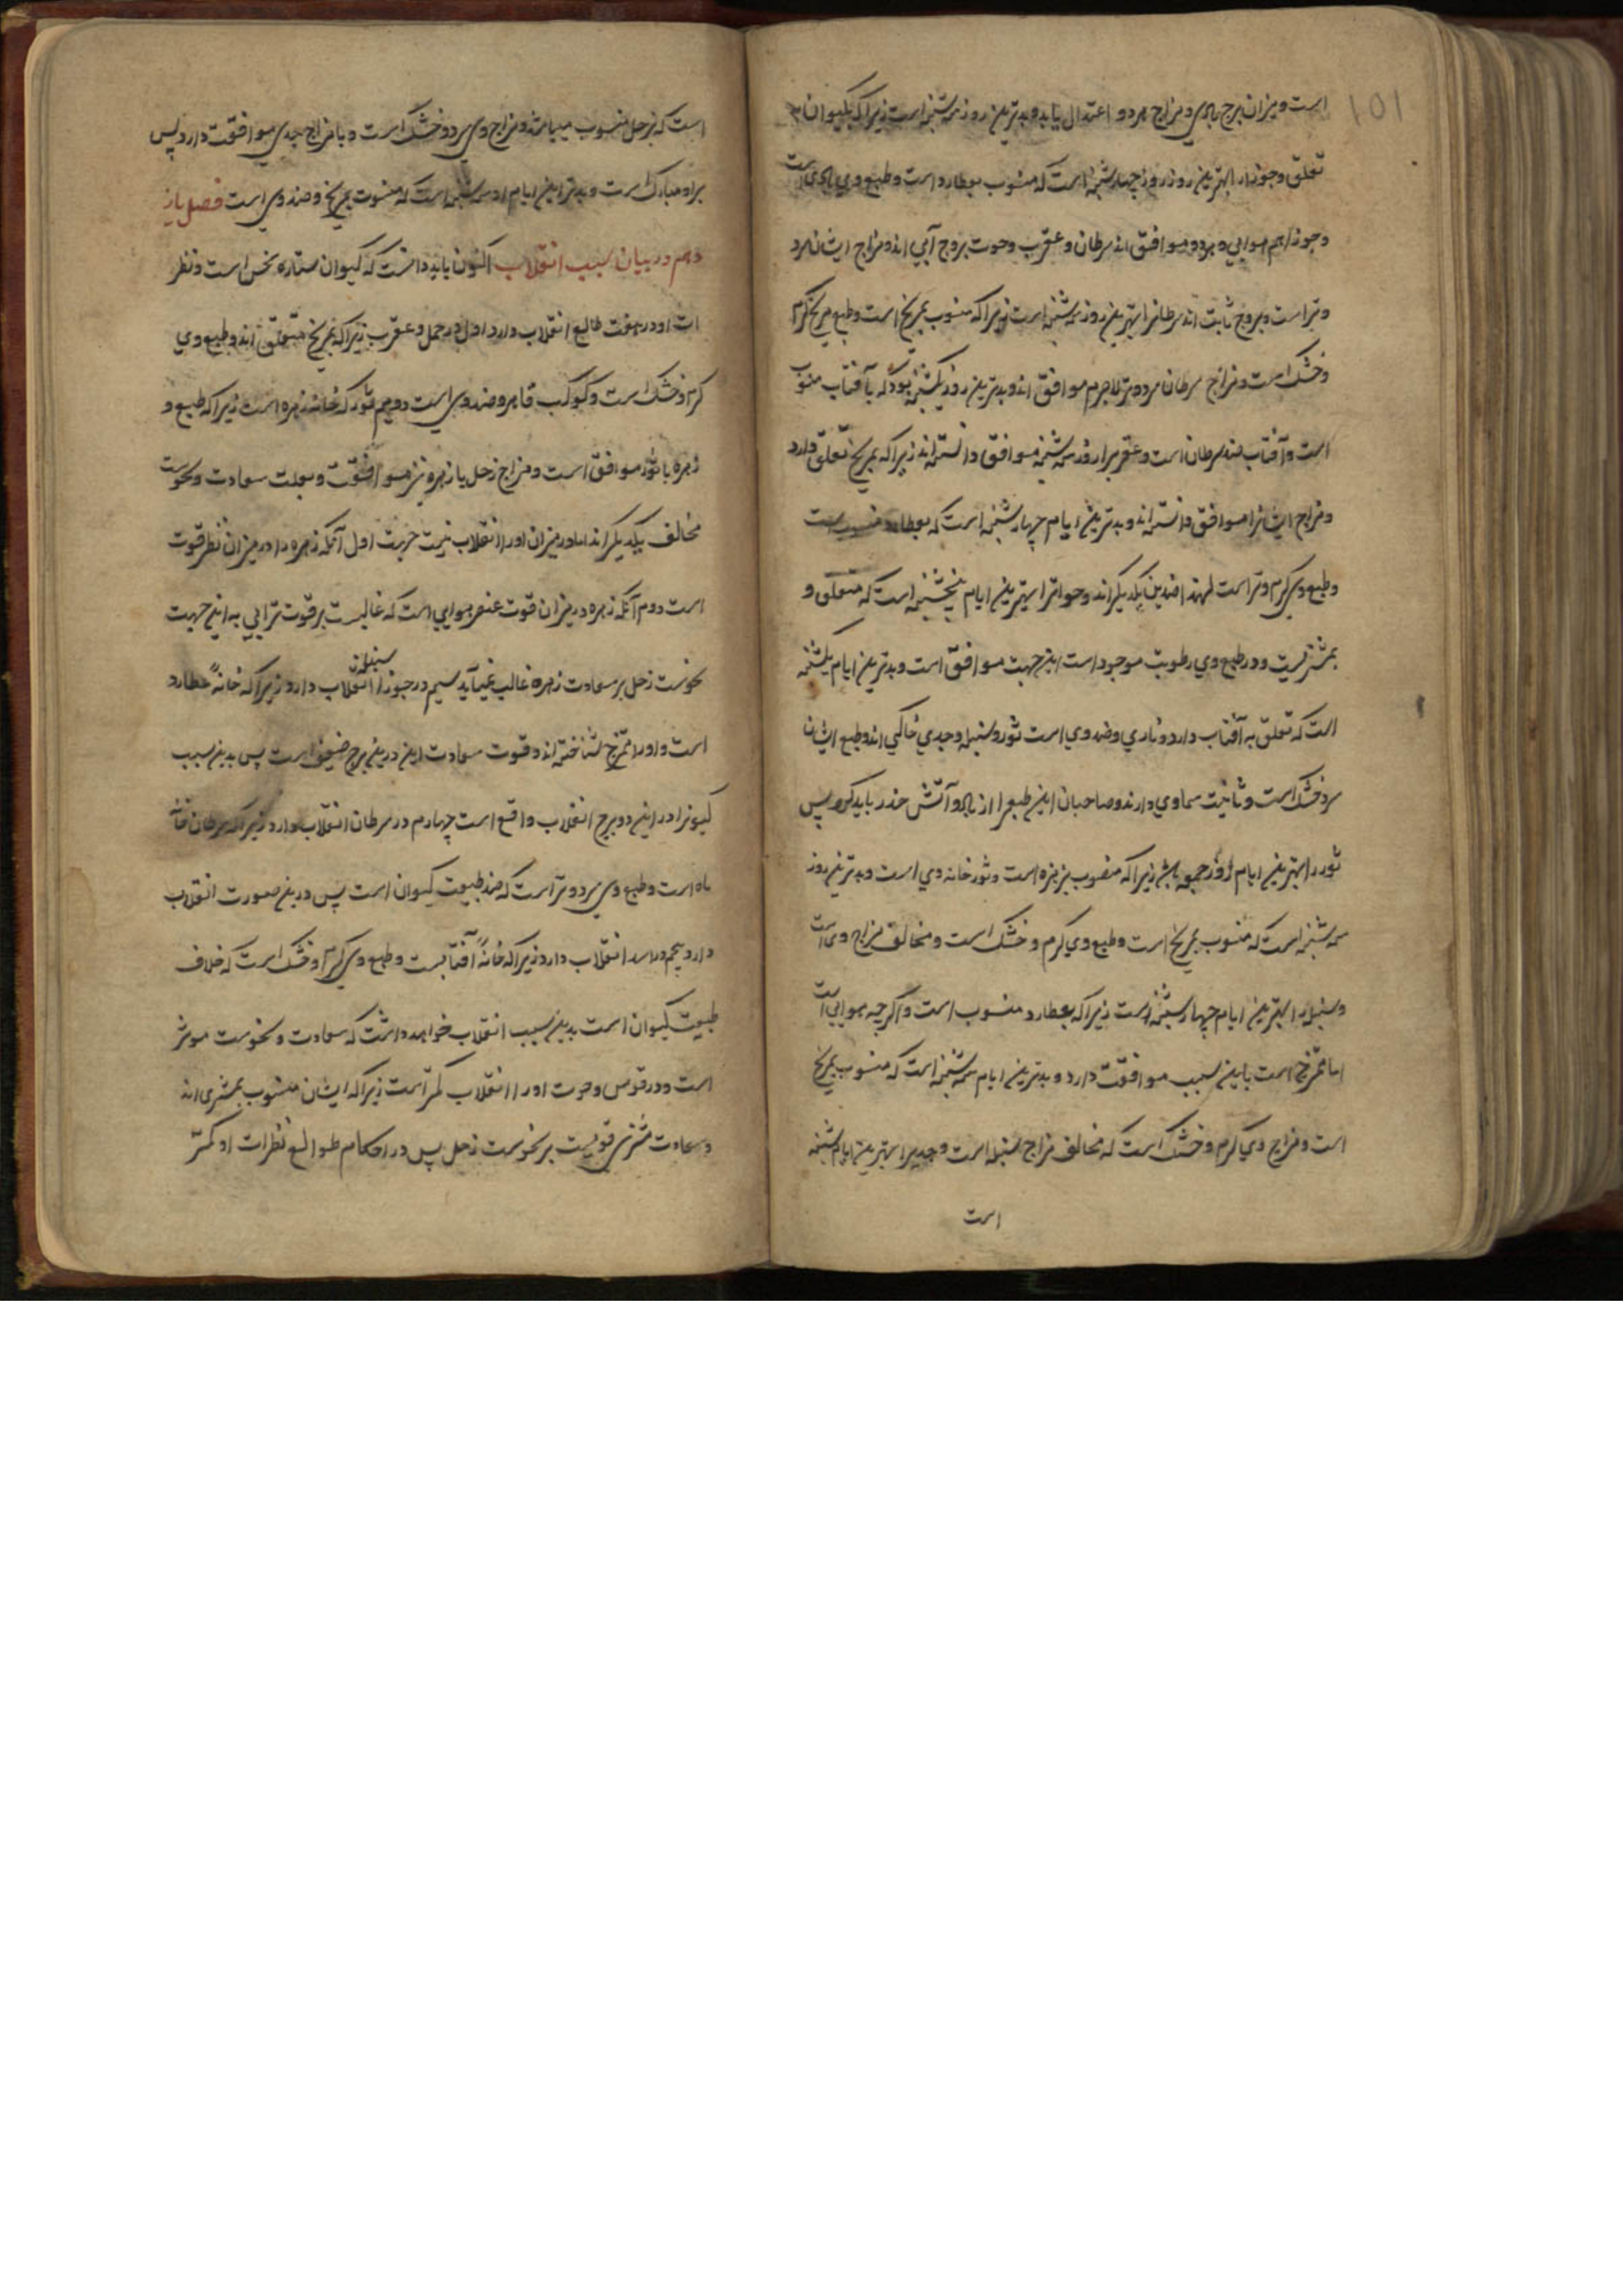 ۱۵۱
است و میزان برج بادی و مزاج هر دو اعتدال یابد و بدترین روز شنبه است زیرا که بکیوان
تعلق و جوزا را بهترین روز روز چهارشنبه است که منسوب بعطارد است و طبع وی بادی است
و جوزا هم هوایی و هر دو موافق اند سرطان و عقرب و حوت بروج آبی اند و مزاج ایشان سرد
و تر است و بروج ثابت اند سرطانرا بهترین روز سه شنبه است زیرا که منسوب بمریخ است و طبع مریخ گرم
و خشک است و مزاج سرطان سرد و تر لاجرم موافق اند و بدترین روز یکشنبه بود که بآفتاب منسوب
است و آفتاب ضد سرطان است و عقرب را روز سه شنبه موافق دانسته اند زیرا که بمریخ تعلق دارد
و مزاج ایشانرا موافق دانسته اند و بدترین ایام چهارشنبه است که بعطارد منسوبست
و طبع وی گرم و تر است لهذا ضدین یکدیگراند و حوترا بهترین ایام پنجشنبه است که متعلق و
بمشتریست و در طبع وی رطوبت موجود است ازین جهت موافق است و بدترین ایام یکشنبه
است که تعلق به آفتاب دارد و ناری و ضد وی است ثور و سنبله و جدی خاکی اند و طبع ایشان
سرد خشک است و ثانیت سماوی دارند و صاحبان این طبع را از باد و آتش حذر باید کرد پس
ثور را بهترین ایام روز جمعه باشد زیرا که منصوب بزهره است و ثور خانه وی است و بدترین روز
سه شنبه است که منسوب بمریخ است و طبع وی گرم و خشک است و مخالف مزاج وی است
و سنبله را بهترین ایام چهارشنبه است زیرا که بعطارد منسوب است و اگرچه هوایی است
اما ممتزج است باین سبب موافقت دارد و بدترین ایام سه شنبه است که منسوب بمریخ
است و مزاج وی گرم و خشک است که مخالف مزاج سنبله است و جدیرا بهترین ایام شنبه
است
است که بزحل منسوب میباشد و مزاج وی سرد و خشک است و با مزاج جدی موافقت دارد پس
برو مبارک است و بدترین ایام او سه شنبه است که منسوب بمریخ و ضد وی است فصل یاز
دهم در بیان سبب انقلاب اکنون باید دانست که کیوان ستاره نحس است و نظر
ات او در هفت طالع انقلاب دارد اول در حمل و عقرب زیرا که بمریخ متعلق اند و طبع وی
گرم و خشک است و کوکب قاهر و ضد وی است دویم ثور که خانه زهره است زیرا که طبع و
زهره با ثور موافق است و مزاج زحل با زهره نیز موافقت و بعلت سعادت و نحوست
مخالف یکدیگراند اما در میزان او را انقلاب نیست جهت اول آنکه زهره را در میزان نظر قوت
است دوم آنکه زهره در میزان قوت عنصر هوایی است که غالبست بر قوت ترابی به این جهت
نحوست زحل بر سعادت زهره غالب نمیآید سیم در جوزا سنبله انقلاب دارد زیرا که خانهٔ عطارد
است و او را ممتزج شناخته اند و قوت سعادت این درین برج ضعیف است پس بدین سبب
کیوانرا درین دو برج انقلاب واقع است چهارم در سرطان انقلاب دارد زیرا که سرطان خانه
ماه است و طبع وی سرد و تر است که ضد طبیعت کیوان است پس درین صورت انقلاب
دارد پنجم در اسد انقلاب دارد زیرا که خانهٔ آفتابست و طبع وی گرم و خشک است که خلاف
طبیعت کیوان است بدین سبب انقلاب خواهد داشت که سعادت و نحوست موثر
است و در قوس و حوت او را انقلاب کمتر است زیرا که ایشان منسوب بمشتری اند
و سعادت مشتری قویست بر نحوست زحل پس در احکام طوالع نظرات او کمتر